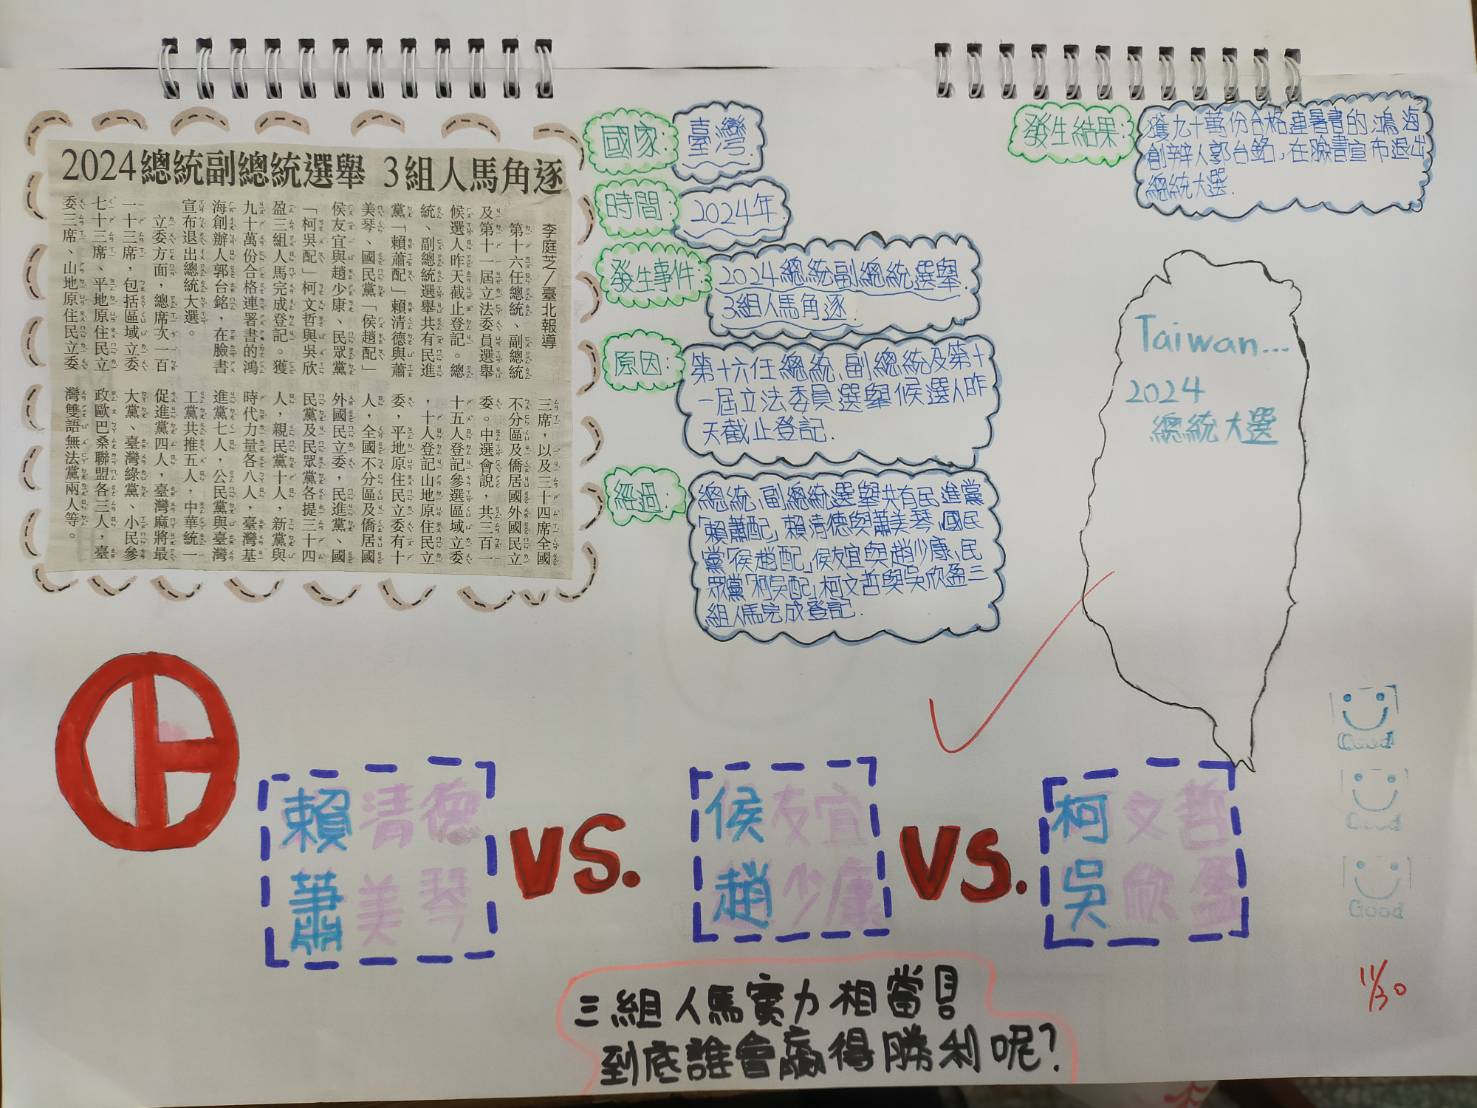 2024總統副總統選舉 3組人馬角逐
李庭芝／臺北報導
第十六任總統、副總統
及第十一屆立法委員選舉
候選人昨天截止登記。總
統、副總統選舉共有民進
黨「賴蕭配」賴清德與蕭
美琴、國民黨「侯趙配」
侯友宜與趙少康、民眾黨
「柯吳配」柯文哲與吳欣
盈三組人馬完成登記。獲
九十萬份合格連署書的鴻
海創辦人郭台銘，在臉書
宣布退出總統大選。
立委方面，總席次一百
一十三席，包括區域立委
七十三席、平地原住民立
委三席、山地原住民立委
三席，以及三十四席全國
不分區及僑居國外國民立
委。中選會說，共三百一
十五人登記參選區域立委
，十人登記山地原住民立
委，平地原住民立委有十
人，全國不分區及僑居國
外國民立委，民進黨、國
民黨及民眾黨各提三十四
人，親民黨十人，新黨與
時代力量各八人，臺灣基
進黨七人，公民黨與臺灣
工黨共推五人，中華統一
促進黨四人，臺灣麻將最
大黨、臺灣綠黨、小民參
政歐巴桑聯盟各三人，臺
灣雙語無法黨兩人等。
國家:
臺灣.
時間:
2024年
發生事件:
2024總統副總統選舉
3組人馬角逐.
原因:
第十六任總統、副總統及第十
一屆立法委員選舉候選人昨
天截止登記.
經過:
總統、副總統選舉共有民進黨
「賴蕭配」賴清德與蕭美琴、國民
黨「侯趙配」侯友宜與趙少康、民
眾黨「柯吳配」柯文哲與吳欣盈三
組人馬完成登記.
發生結果:
獲九十萬份合格連署書的鴻海
創辦人郭台銘,在臉書宣布退出
總統大選.
Taiwan...
2024
總統大選
賴清德
蕭美琴
VS.
侯友宜
趙少康
VS.
柯文哲
吳欣盈
Good
Good
Good
11/30
三組人馬實力相當!
到底誰會贏得勝利呢?